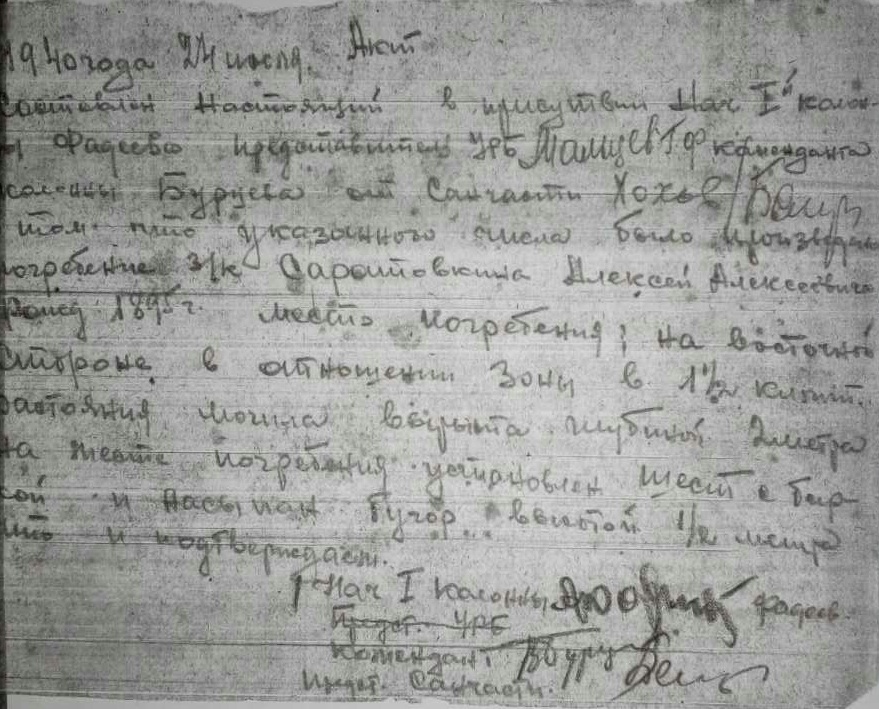 Акт
1940 года 24 июля.
Составлен настоящий в присутствии Нач I й колон-
ы Фадеева представитель УРБ комманданта
колонны Буруева от Санчасти Хохов
том что указанного числа было произведено
погребение з/к Саратовкина Алексей Алексеевича
рожд 1895 г. место погребения; на восточной
стороне в отношении Зоны в 1 1/2 килом.
растояния могила вырыта глубиной 2 метра
на месте погребения установлен шест с бир-
кой и насыпан бугор высотой 1/2 метра
что и подтверждаем.
Нач I колонны Фадеев.
Предст. УРБ
Комендант
Предст. Санчасти.